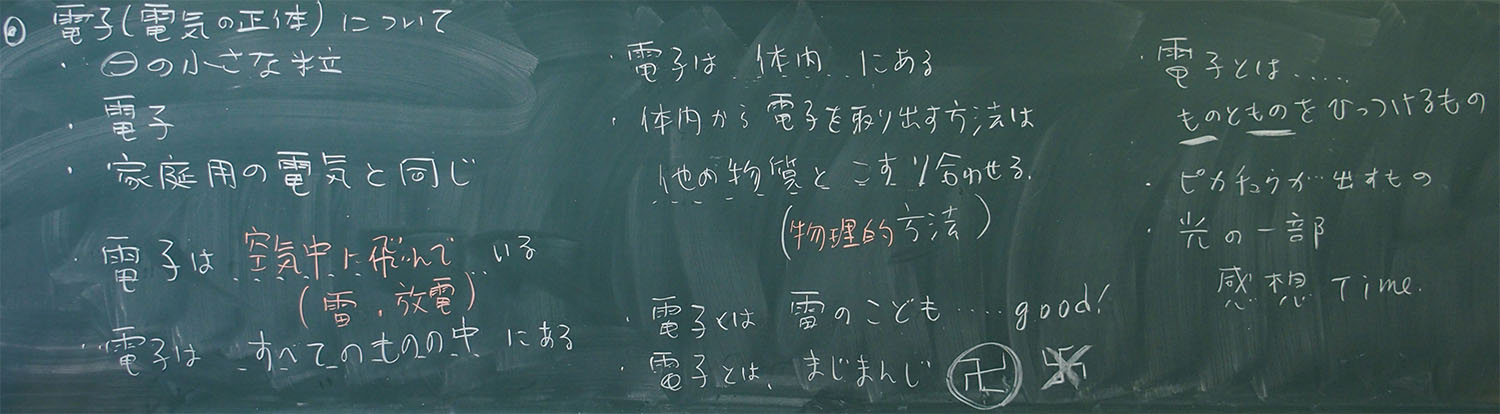 ◎ 電子(電気の正体)について
・⊖の小さな粒
・電子
・家庭用の電気と同じ
・電子は 空気中に飛んで いる
(雷、放電)
・電子は すべてのものの中 にある
・電子は 体内 にある
・体内から電子を取り出す方法は
他の物質とこすり合わせる。
(物理的方法)
・電子とは 雷のこども……good!
・電子とは、まじまんじ 卍 卐
・電子とは……
ものとものをひっつけるもの
・ピカチュウが…出すもの
・光の一部
感想 Time.